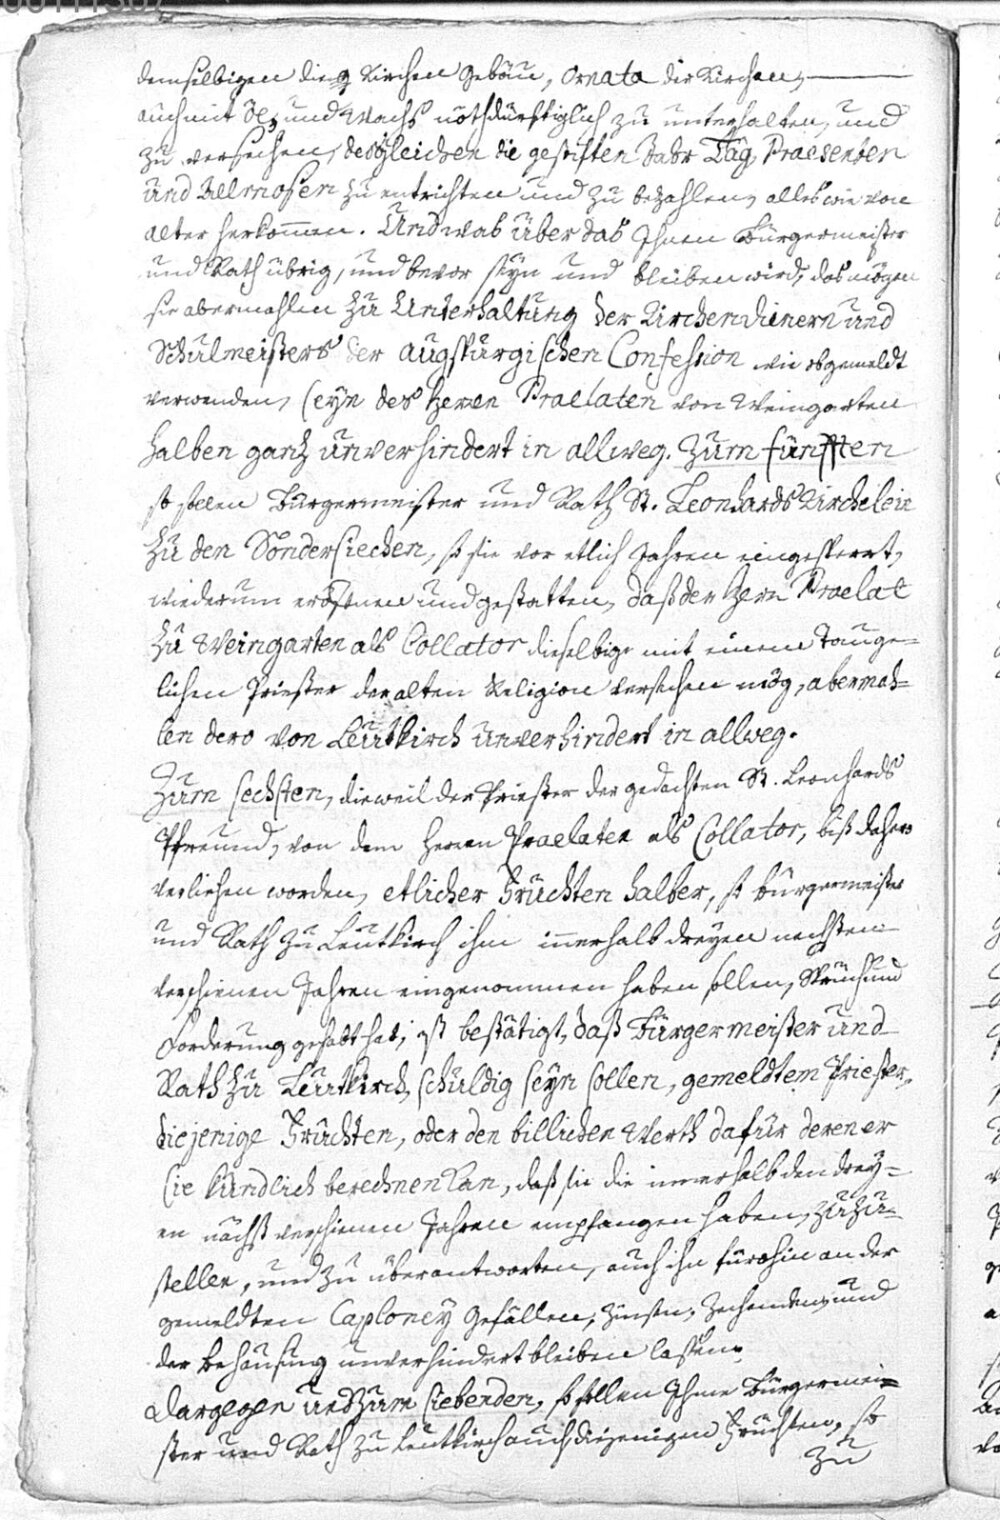 demselbigen die Kirchen Gebäu, Ornata der Kirchen,
auch mit Öl, und Wachs nothdürfftiglich zu unterhalten, und
zu versehen, desgleichen die gestiften Jahr Täg, Praesenten
und Allmosen zu entrichten und zu bezahlen, alles wie von
alter herkommen. Und was über das Ihnen Bürgermeister
und Rath übrig, und bevor seyn und bleiben wird, das mögen
sie abermahlen zu Unterhaltung der Kirchendienern und
Schulmeisters der augspurgischen Confession wie obgemeldt
verwenden, seyn des Herren Praelaten von Weingarten
halben ganz unverhindert in allweg. Zum fünfften
so sollen Bürgermeister und Rath St. Leonhards Kirchelein
zu den Sondersiechen, so sie vor etlich Jahren eingesperrt,
wiederum eröffnen und gestatten, daß der Herr Praelat
zu Weingarten als Collator dieselbige mit einem Tauge=
lichen Priester der alten Religion versehen mög, abermah=
len dero von Leutkirch unverhindert in allweg.
Zum sechsten, dieweil der Priester der gedachten St. Leonhards
Pfreund, von dem Herren Praelaten als Collator, biß daher
verliehen worden, etlicher Früchten halber, so Bürgermeister
und Rath zu Leutkirch ihm innerhalb dreyen nechsten
verschienen Jahren eingenommen haben sollen, Sprüch und
Forderung gehabt hat, ist bestätigt, daß Bürgermeister und
Rath zu Leutkirch, schuldig seyn sollen, gemeldtem Priester,
diejenige Früchten, oder den billichen Werth dafür deren er
sie kündlich berechnen kan, daß sie die innerhalb den drey=
en nächst verschienen Jahren empfangen haben, zuzu=
stellen, und zu überantworten, auch ihn fürohin an der
gemeldten Caploney Gefällen, Zinsen, Zehenden, und
der Behausung unverhindert bleiben lassen.
Dargegen und Zum siebenden, so sollen Ihme Bürgermei=
ster und Rath zu Leutkirch auch diejenigen Früchten, so
zu